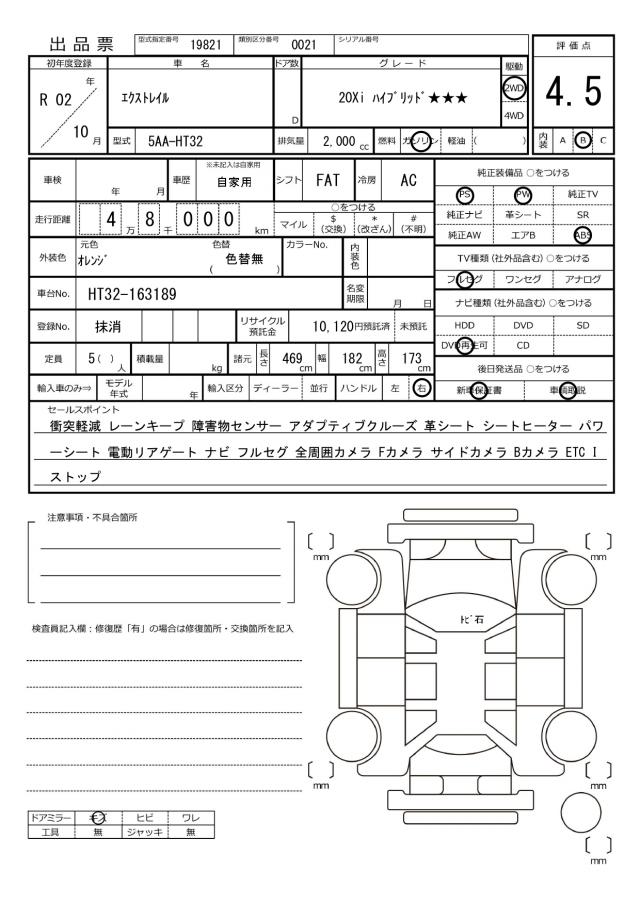 出品票 型式指定番号 19821 類別区分番号 0021 シリアル番号
評価点
4.5
内装 A B C
初年度登録 車名 ドア数 グレード 駆動
R 02 年 10 月
エクストレイル D 20Xi ハイブリッド★★★ 2WD 4WD
型式 5AA-HT32 排気量 2,000 cc 燃料 ガソリン 軽油 ( )
車検 年 月 車歴 ※未記入は自家用 自家用 シフト FAT 冷房 AC
走行距離 4 万 8 千 0 0 0 km
○をつける
マイル $ (交換) * (改ざん) # (不明)
外装色 元色 オレンジ 色替 ( 色替無 ) カラーNo. 内装色
車台No. HT32-163189 名変期限 月 日
登録No. 抹消 リサイクル預託金 10,120円預託済 未預託
定員 5 ( ) 人 積載量 kg 諸元 長さ 469 cm 幅 182 cm 高さ 173 cm
輸入車のみ⇒ モデル年式 年 輸入区分 ディーラー 並行 ハンドル 左 右
純正装備品 ○をつける
PS PW 純正TV
純正ナビ 革シート SR
純正AW エアB ABS
TV種類 (社外品含む) ○をつける
フルセグ ワンセグ アナログ
ナビ種類 (社外品含む) ○をつける
HDD DVD SD
DVD再生可 CD
後日発送品 ○をつける
新車保証書 車輌取説
セールスポイント
衝突軽減 レーンキープ 障害物センサー アダプティブクルーズ 革シート シートヒーター パワ
ーシート 電動リアゲート ナビ フルセグ 全周囲カメラ Fカメラ サイドカメラ Bカメラ ETC I
ストップ
注意事項・不具合箇所
検査員記入欄：修復歴「有」の場合は修復箇所・交換箇所を記入
〔 〕 mm
〔 〕 mm
トビ石
〔 〕 mm
〔 〕 mm
〔 〕 mm
ドアミラー キズ ヒビ ワレ
工具 無 ジャッキ 無